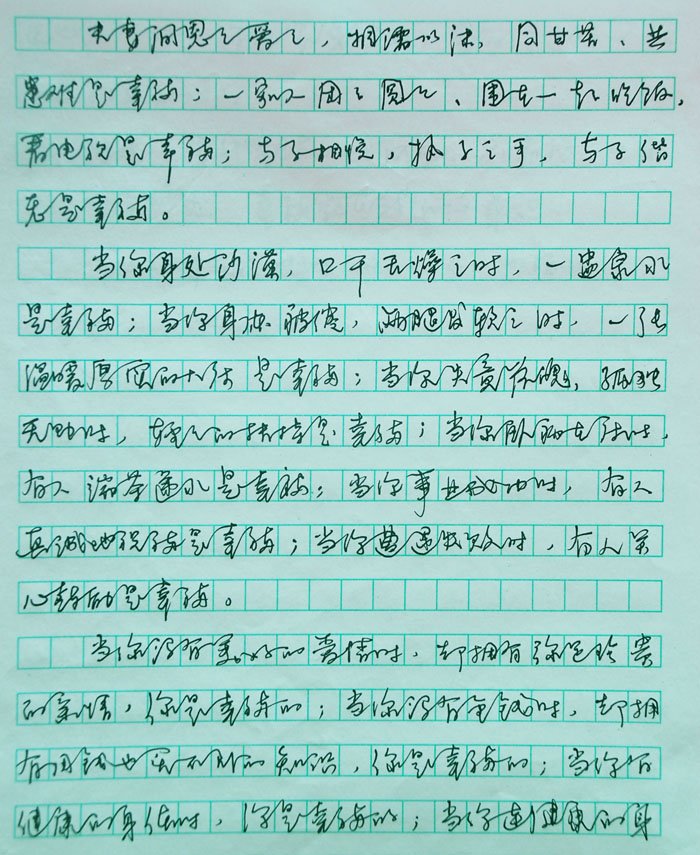 夫妻间恩恩爱爱，相濡以沫，同甘苦、共
患难是幸福；一家人团团圆圆、围在一起吃饭，
看电视是幸福；与子相悦，执子之手，与子偕
老是幸福。
当你身处沙漠，口干舌燥之时，一盅泉水
是幸福；当你身体疲倦，两腿发软之时，一张
温暖厚实的大床是幸福；当你失魂落魄，孤独
无助时，轻轻的扶持是幸福；当你卧病在床时，
有人端茶递水是幸福；当你事业成功时，有人
真诚地祝福是幸福；当你遭遇失败时，有人关
心鼓励是幸福。
当你没有美好的爱情时，却拥有弥足珍贵
的亲情，你是幸福的；当你没有金钱时，却拥
有用钱也买不到的知识，你是幸福的；当你有
健康的身体时，你是幸福的；当你连健康的身